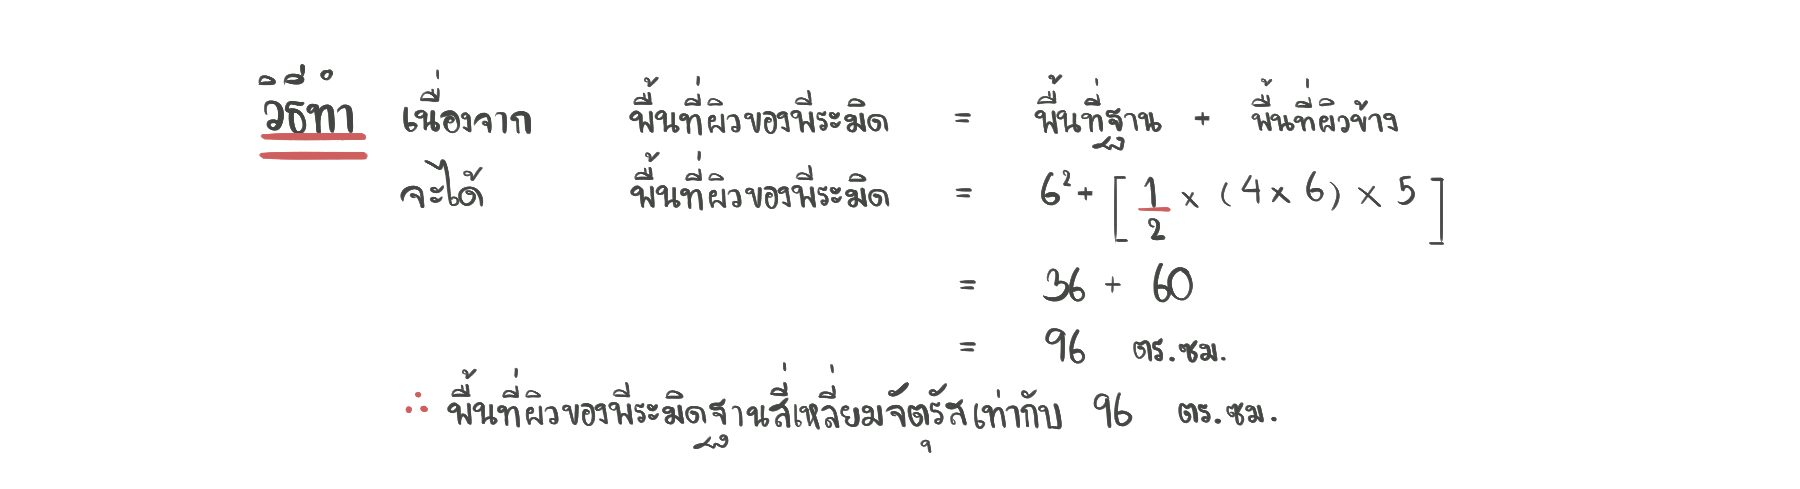 วิธีทำ เนื่องจาก พื้นที่ผิวของพีระมิด = พื้นที่ฐาน + พื้นที่ผิวข้าง
จะได้ พื้นที่ผิวของพีระมิด = 6² + [ 1/2 × (4 × 6) × 5 ]
= 36 + 60
= 96 ตร.ซม.
∴ พื้นที่ผิวของพีระมิดฐานสี่เหลี่ยมจัตุรัสเท่ากับ 96 ตร.ซม.